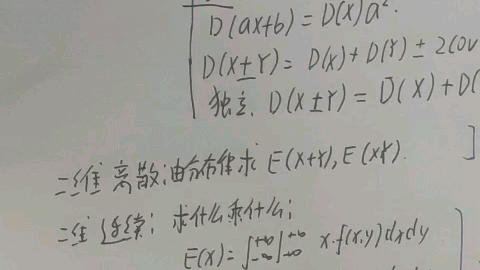 D(ax+b) = D(X)a².
D(X±Y) = D(X)+D(Y) ± 2Cov
独立. D(X±Y) = D(X)+D(
二维离散:由分布律求 E(X+Y), E(XY).
二维连续: 求什么乘什么;
E(X) = ∫_{-∞}^{+∞}∫_{-∞}^{+∞} x·f(x,y)dxdy